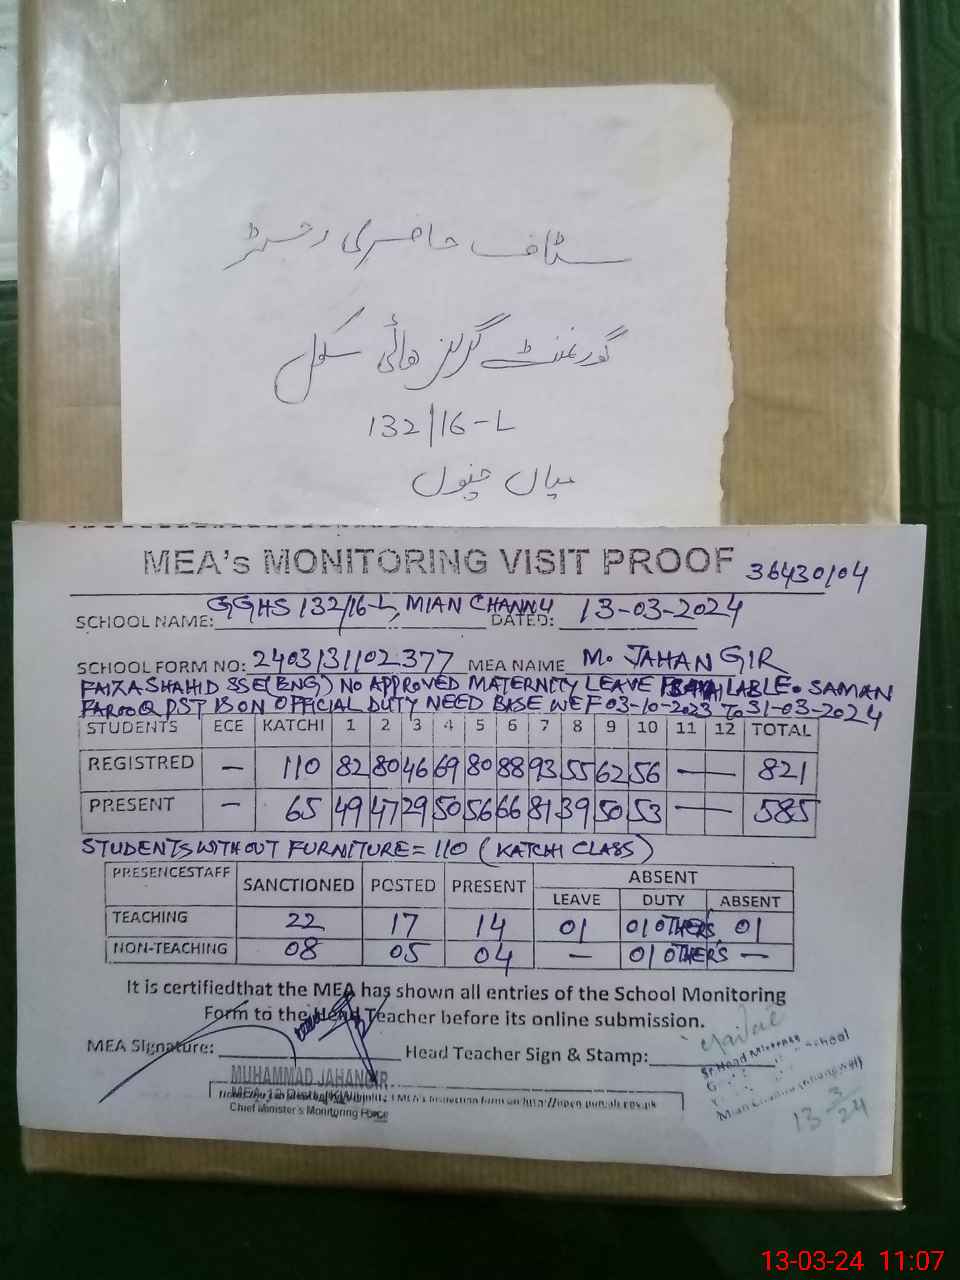 سٹاف حاضری رجسٹر
گورنمنٹ گرلز ھائی سکول
132/16-L
میاں چنوں
MEA's MONITORING VISIT PROOF 36430104
SCHOOL NAME: GGHS 132/16-L, MIAN CHANNU DATED: 13-03-2024
SCHOOL FORM NO: 2403131102377 MEA NAME M. JAHANGIR
FAIZA SHAHID SSE(ENG) NO APPROVED MATERNITY LEAVE IS AVAILABLE. SAMAN
FAROOQ PST IS ON OFFICIAL DUTY NEED BASE WEF 03-10-2023 TO 31-03-2024
STUDENTS ECE KATCHI 1 2 3 4 5 6 7 8 9 10 11 12 TOTAL
REGISTRED – 110 82 80 46 69 80 88 93 55 62 56 — 821
PRESENT – 65 49 47 29 50 56 66 81 39 50 53 — 585
STUDENTS WITHOUT FURNITURE = 110 (KATCHI CLASS)
PRESENCESTAFF SANCTIONED POSTED PRESENT ABSENT
LEAVE DUTY ABSENT
TEACHING 22 17 14 01 01 OTHERS 01
NON-TEACHING 08 05 04 – 01 OTHERS –
It is certifiedthat the MEA has shown all entries of the School Monitoring
Form to the Head Teacher before its online submission.
MEA Signature: Head Teacher Sign & Stamp:
MUHAMMAD JAHANGIR
MEA-12
Chief Minister's Monitoring Force
Sr Head Mistress
School
Mian Channu
13 3/24
13-03-24 11:07